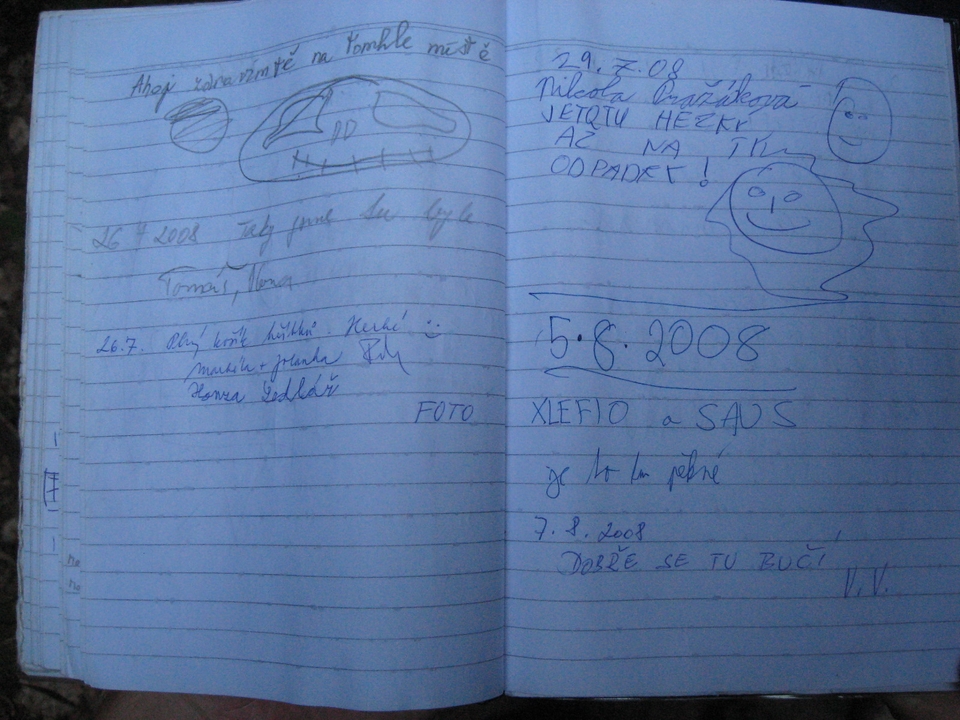 Ahoj zdravímtě na tomhle místě
26 7 2008 Taky jsme tu byli
Tomáš,
26.7. Plný košík hříbků. Hezké :)
Markéta + Jolanka
Honza Sedlář
FOTO
29.7.08
Nikola Pražáková
JETOTU HEZKÉ
AŽ NA TY
ODPADKY!
5.8.2008
XLEFIO a SAUS
je to tu pěkné
7.8.2008
DOBŘE SE TU BUČÍ
V.V.